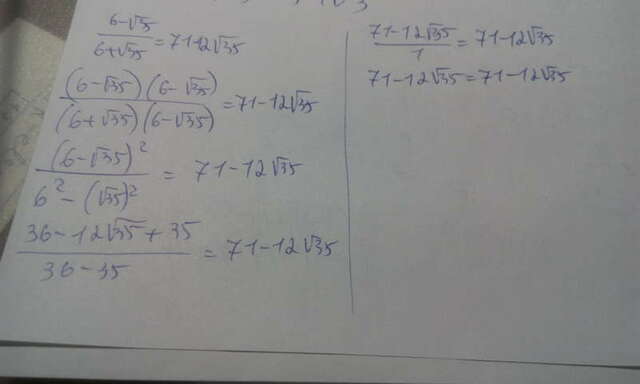 (6-√35)/(6+√35) = 71-12√35
((6-√35)(6-√35))/((6+√35)(6-√35)) = 71-12√35
(6-√35)²/(6²-(√35)²) = 71-12√35
(36-12√35+35)/(36-35) = 71-12√35
(71-12√35)/1 = 71-12√35
71-12√35 = 71-12√35